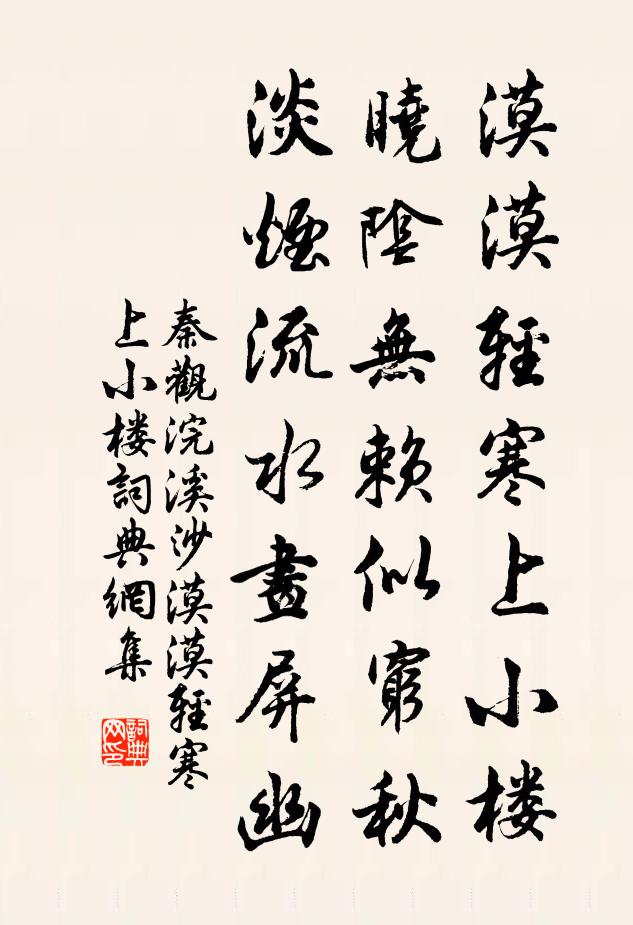 漠漠輕寒上小楼
曉陰無賴似窮秋
淡煙流水畫屏幽
秦觀浣溪沙漠漠輕寒
上小楼詞典網集
詞典網印